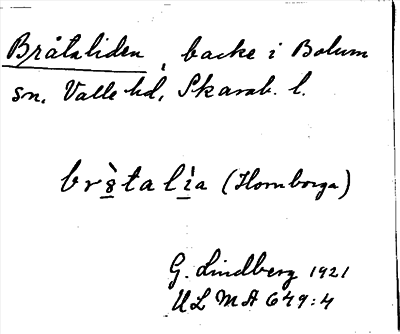 Bråtaliden, backe i Bolum
sn, Valle hd, Skarab. l.
brs̲̀talì̲a (Hornborga)
G. Lindberg 1921
ULMA 649:4